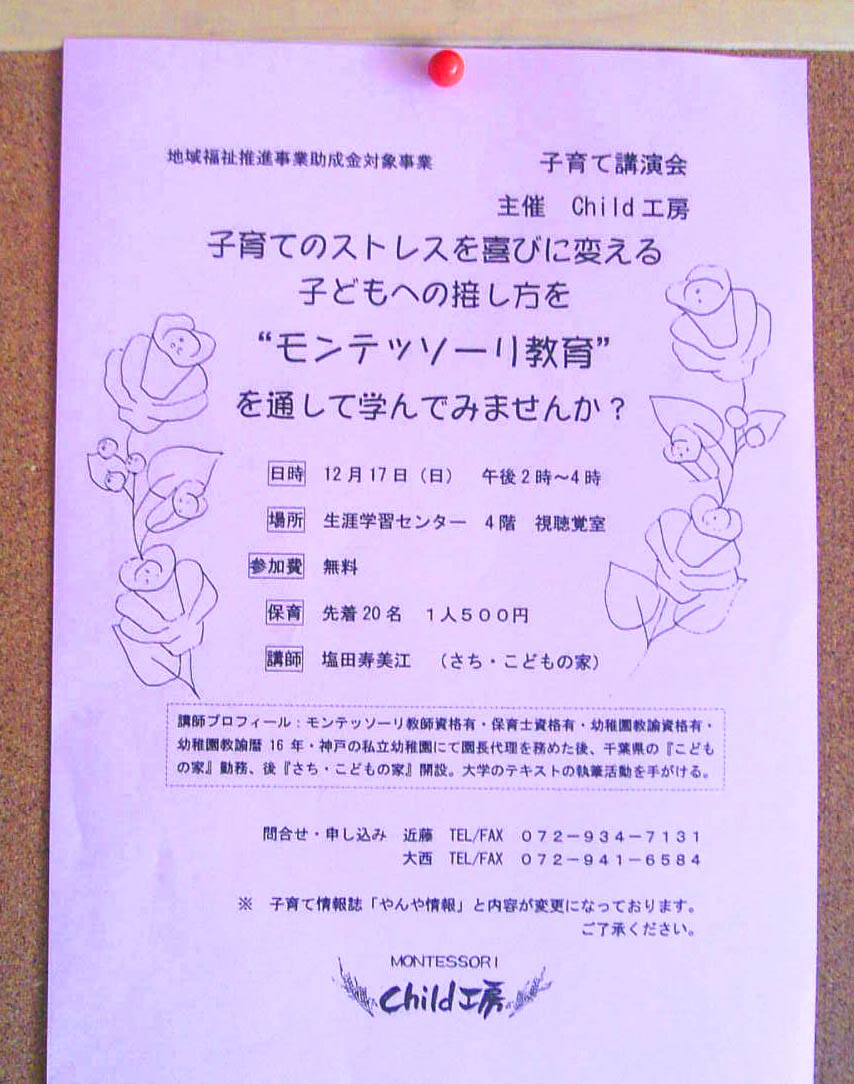 地域福祉推進事業助成金対象事業　子育て講演会
主催　Child工房
子育てのストレスを喜びに変える
子どもへの接し方を
“モンテッソーリ教育”
を通して学んでみませんか？
日時　12月17日（日）　午後2時～4時
場所　生涯学習センター　4階　視聴覚室
参加費　無料
保育　先着20名　１人５００円
講師　塩田寿美江　（さち・こどもの家）
講師プロフィール：モンテッソーリ教師資格有・保育士資格有・幼稚園教諭資格有・
幼稚園教諭暦 16 年・神戸の私立幼稚園にて園長代理を務めた後、千葉県の『こども
の家』勤務、後『さち・こどもの家』開設。大学のテキストの執筆活動を手がける。
問合せ・申し込み　近藤　TEL/FAX　０７２－９３４－７１３１
大西　TEL/FAX　０７２－９４１－６５８４
※　子育て情報誌「やんや情報」と内容が変更になっております。
ご了承ください。
MONTESSORI
Child工房